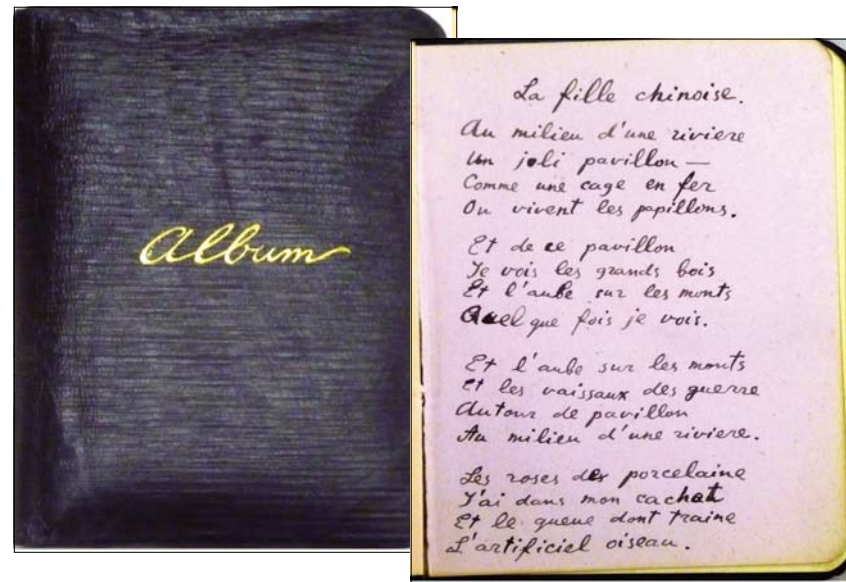 Album
La fille chinoise.
Au milieu d'une riviere
Un joli pavillon —
Comme une cage en fer
Ou vivent les papillons.
Et de ce pavillon
Je vois les grands bois
Et l'aube sur les monts
Quelque fois je vois.
Et l'aube sur les monts
Et les vaissaux des guerre
Autour de pavillon
Au milieu d'une riviere.
Les roses des porcelaine
J'ai dans mon cachot
Et le queue dont traine
L'artificiel oiseau.